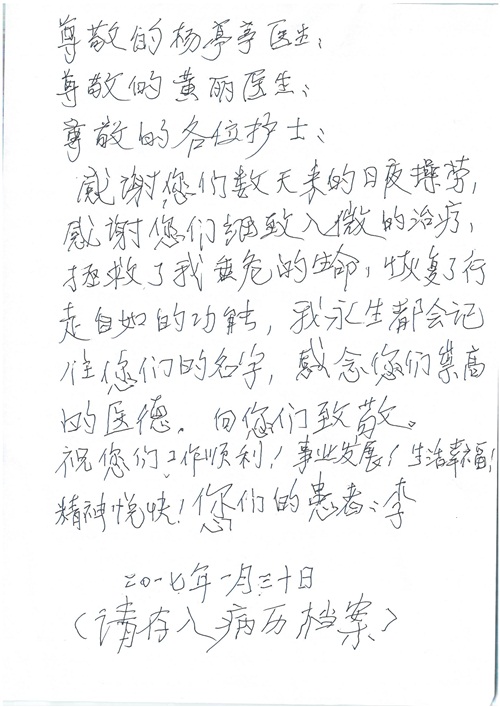 尊敬的杨亭亭医生：
尊敬的黄丽医生：
尊敬的各位护士：
感谢您们数天来的日夜操劳，
感谢您们细致入微的治疗，
拯救了我垂危的生命，恢复了行
走自如的功能，我永生都会记
住您们的名字，感念您们崇高
的医德。向您们致敬。
祝您们工作顺利！事业发展！生活幸福！
精神悦快！您们的患者：李
二〇一七年一月三十日
（请存入病历档案）